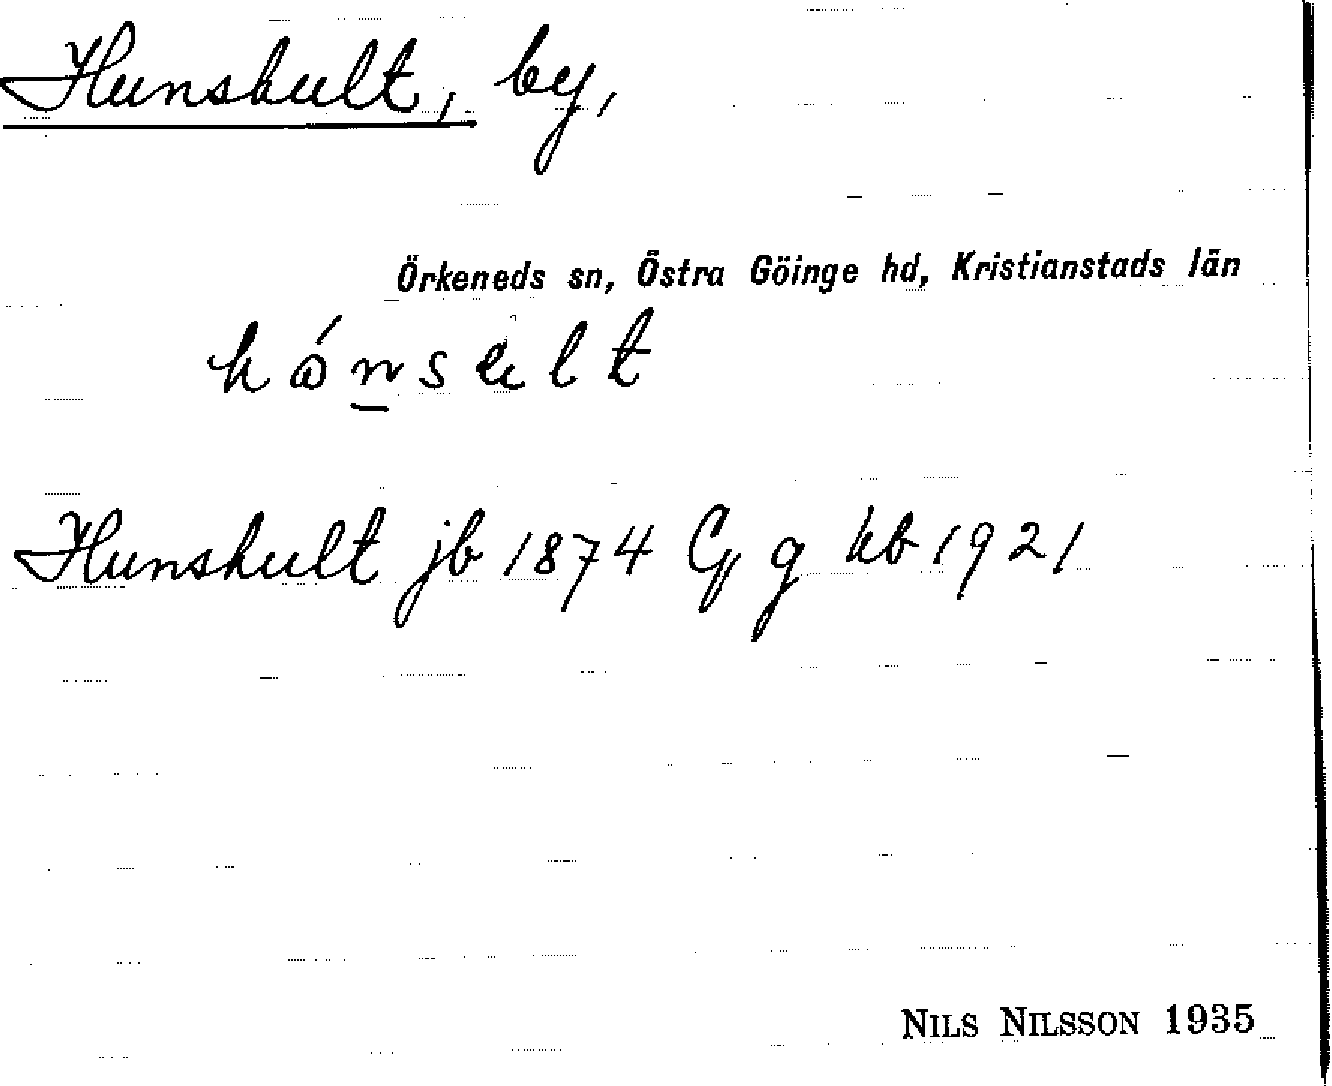 Hunshult, by,
Örkeneds sn, Östra Göinge hd, Kristianstads län
Hunshult jb 1874 Gg kb 1921
NILS NILSSON 1935